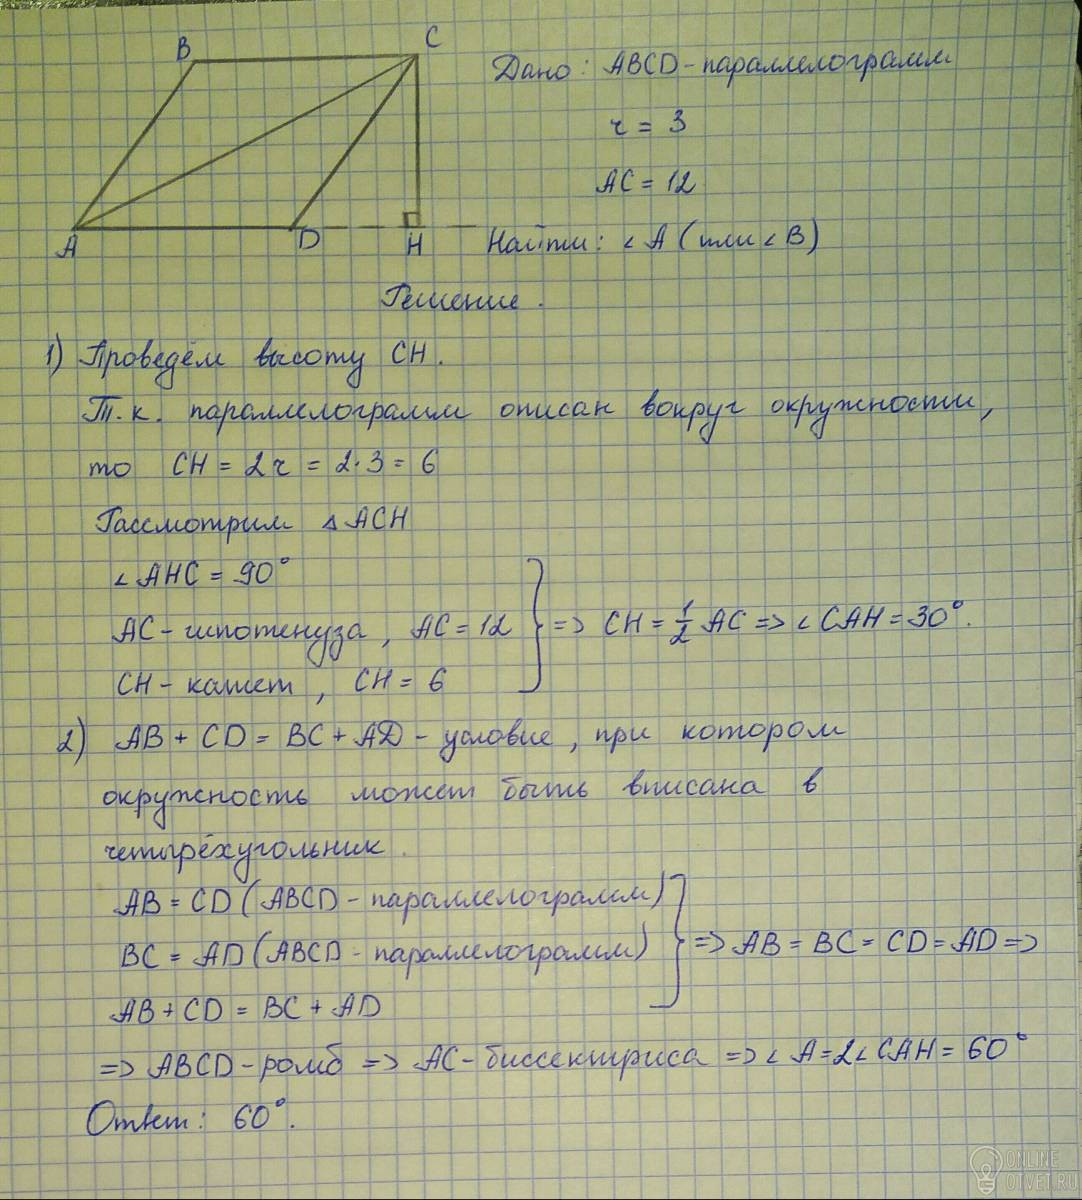 B
C
Дано: ABCD - параллелограмм
r = 3
AC = 12
A
D
H
Найти: ∠A (или ∠B)
Решение.
1) Проведём высоту CH.
Т.к. параллелограмм описан вокруг окружности,
то CH = 2r = 2·3 = 6
Рассмотрим △ACH
∠AHC = 90°
AC - гипотенуза, AC = 12
CH - катет, CH = 6
=> CH = 1/2 AC => ∠CAH = 30°.
2) AB + CD = BC + AD - условие, при котором
окружность может быть вписана в
четырёхугольник.
AB = CD (ABCD - параллелограмм)
BC = AD (ABCD - параллелограмм)
AB + CD = BC + AD
=> AB = BC = CD = AD =>
=> ABCD - ромб => AC - биссектриса => ∠A = 2∠CAH = 60°
Ответ: 60°.
ONLINE
OTVET.RU